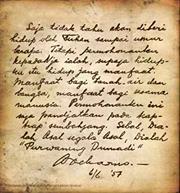 Saja tidak tahu akan diberi
hidup oleh Tuhan sampai umur
berapa. Tetapi permohonanku
kepadaNja ialah, supaja hidup-
ku itu hidup jang manfaat.
Manfaat bagi tanah air dan
bangsa, manfaat bagi sesama
manusia. Permohonanku ini
saja pandjatkan pada tiap-
tiap sembahjang. Sebab, Dia-
lah Asal segala Asal, Dialah
"Purwaning Dumadi"
Soekarno.
6/6 '57